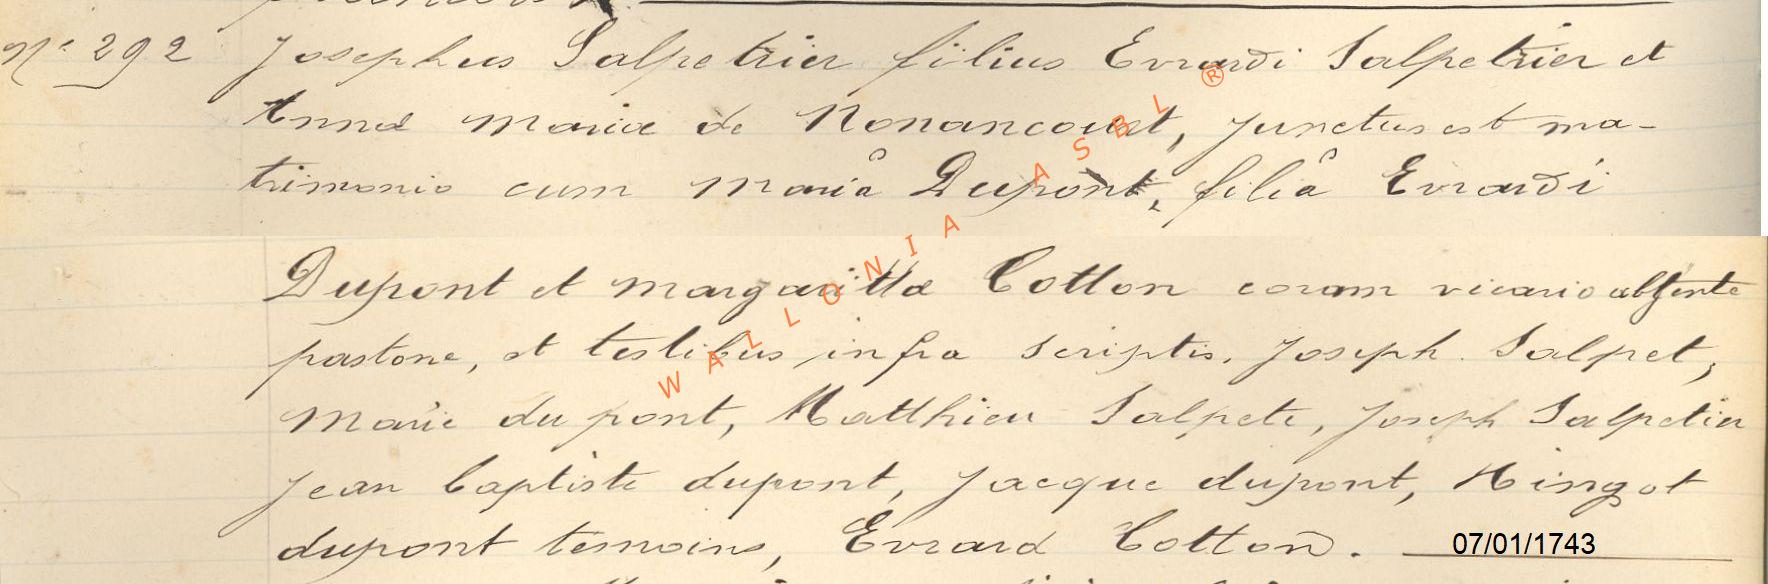 N° 292 Josephus Salpetrier filius Evrardi Salpetrier et
Annæ Mariæ de Nonancourt, junctus est ma-
trimonio cum Mariâ Dupont, filiâ Evrardi
Dupont et margarittæ Cotton coram vicario absente
pastore, et testibus infra scriptis. Joseph Salpet,
Marie du pont, Matthieu Salpete, Joseph Salpetier
Jean baptiste dupont, Jacque dupont, Hingot
dupont temoins, Evrard Cotton.
07/01/1743
WALLONIA ASBL ®